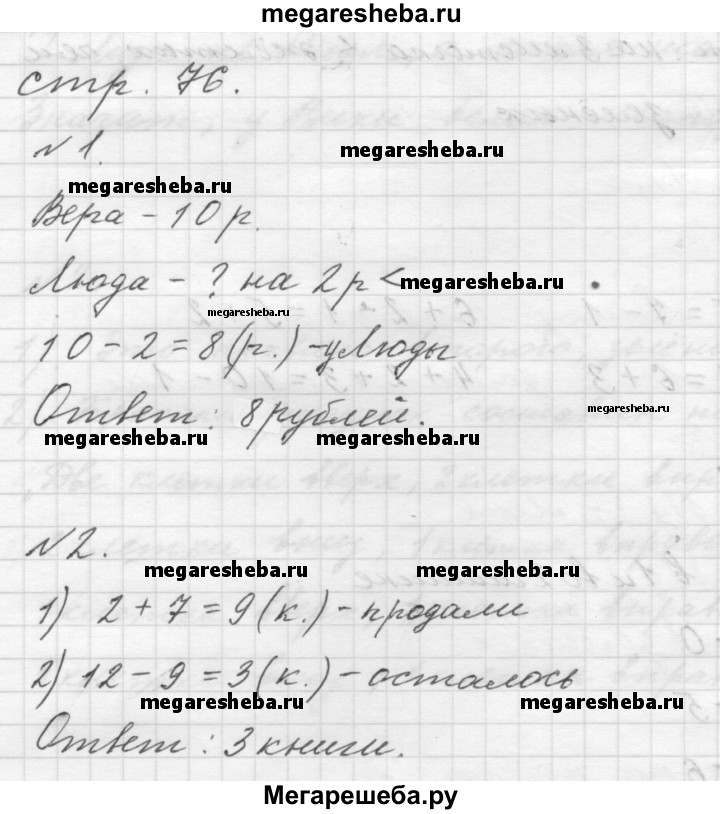 megaresheba.ru
стр. 76.
№1.
megaresheba.ru
megaresheba.ru
Вера - 10 р.
Люда - ? на 2 р < megaresheba.ru
megaresheba.ru
10 - 2 = 8 (р.) - у Люды
megaresheba.ru
Ответ: 8 рублей.
megaresheba.ru megaresheba.ru
№2.
megaresheba.ru megaresheba.ru
1) 2 + 7 = 9 (к.) - продали
2) 12 - 9 = 3 (к.) - осталось
megaresheba.ru megaresheba.ru
Ответ: 3 книги.
Мегарешеба.ру